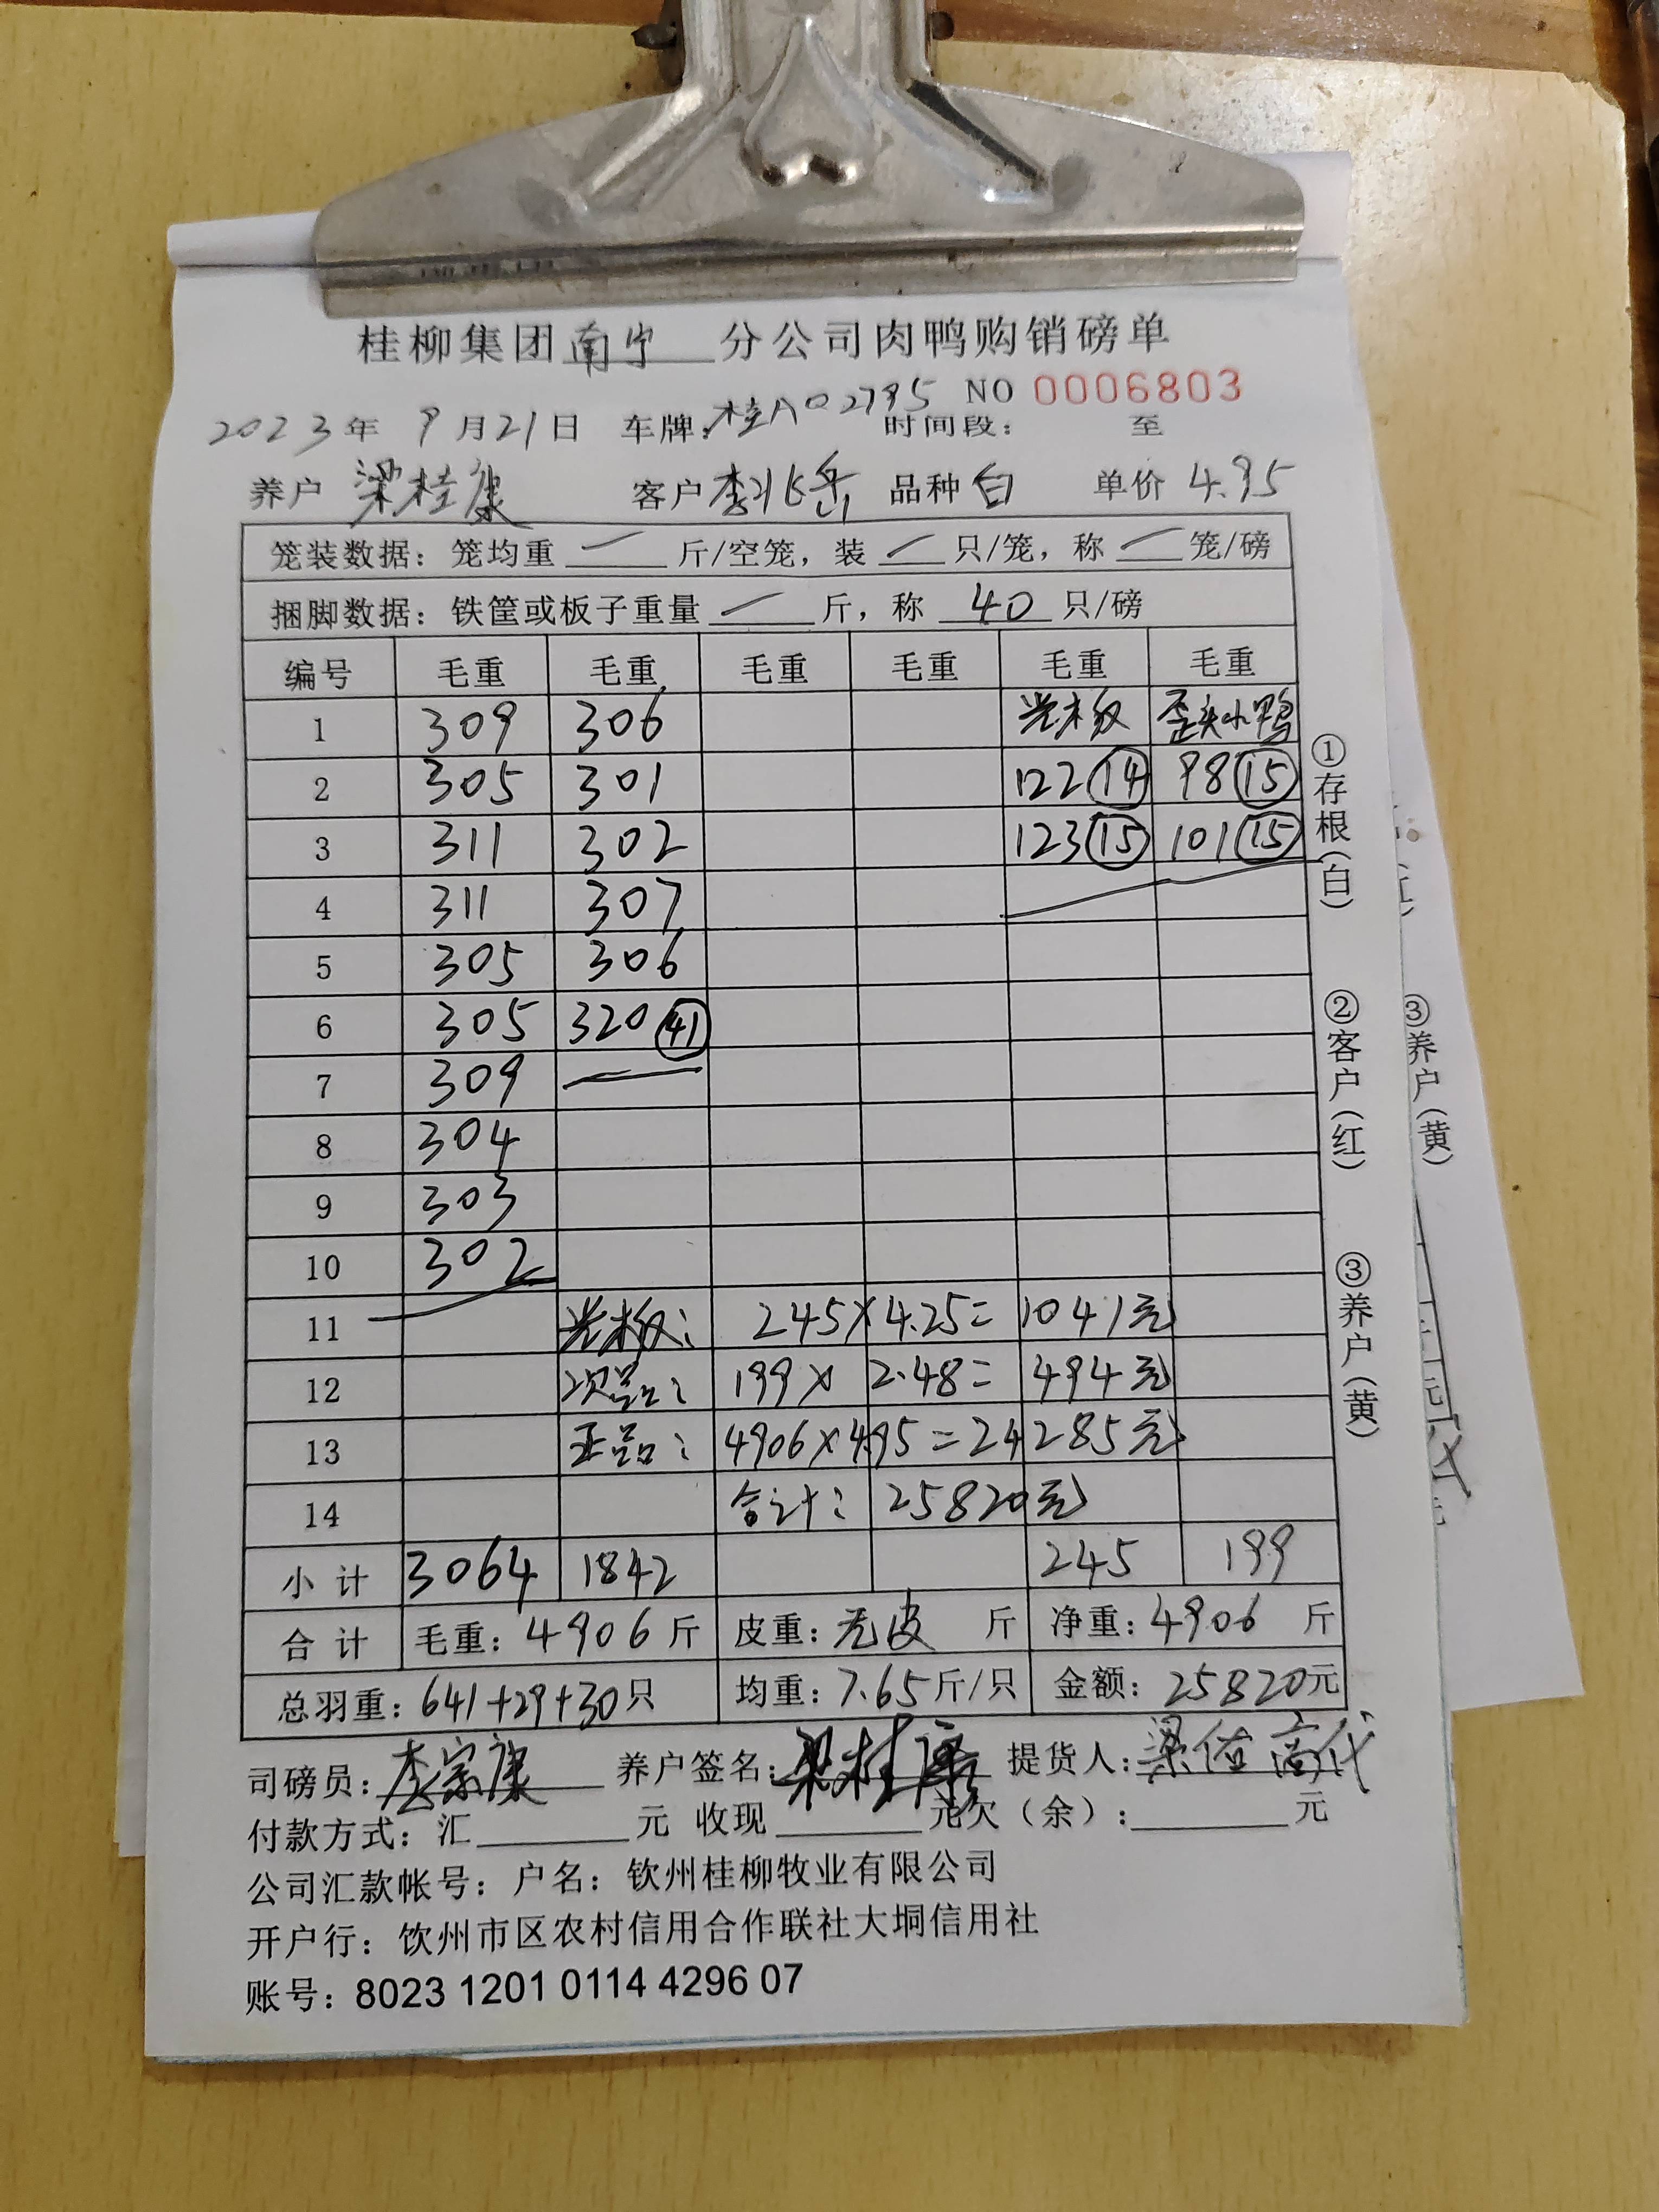 桂柳集团南宁分公司肉鸭购销磅单
NO 0006803
2023年 9月21日 车牌:桂A02795 时间段: 至
养户 梁桂康 客户 李北岳 品种 白 单价 4.95
笼装数据: 笼均重 — 斤/空笼, 装 — 只/笼, 称 — 笼/磅
捆脚数据: 铁筐或板子重量 — 斤, 称 40 只/磅
编号 毛重 毛重 毛重 毛重 毛重 毛重
1 309 306 光板 歪头小鸭
2 305 301 122 14 98 15
3 311 302 123 15 101 15
4 311 307
5 305 306
6 305 320 41
7 309
8 304
9 303
10 302
11 光板: 245×4.25=1041元
12 次品: 199×2.48=494元
13 正品: 4906×4.95=24285元
14 合计: 25820元
小计 3064 1842 245 199
合计 毛重: 4906 斤 皮重: 无皮 斤 净重: 4906 斤
总羽重: 641+29+30只 均重: 7.65斤/只 金额: 25820元
司磅员: 李宗康 养户签名: 梁桂康 提货人: 梁 高代
付款方式: 汇 元 收现 元欠(余): 元
公司汇款帐号: 户名: 钦州桂柳牧业有限公司
开户行: 饮州市区农村信用合作联社大垌信用社
账号: 8023 1201 0114 4296 07
①存根(白)
②客户(红)
③养户(黄)
③养户(黄)